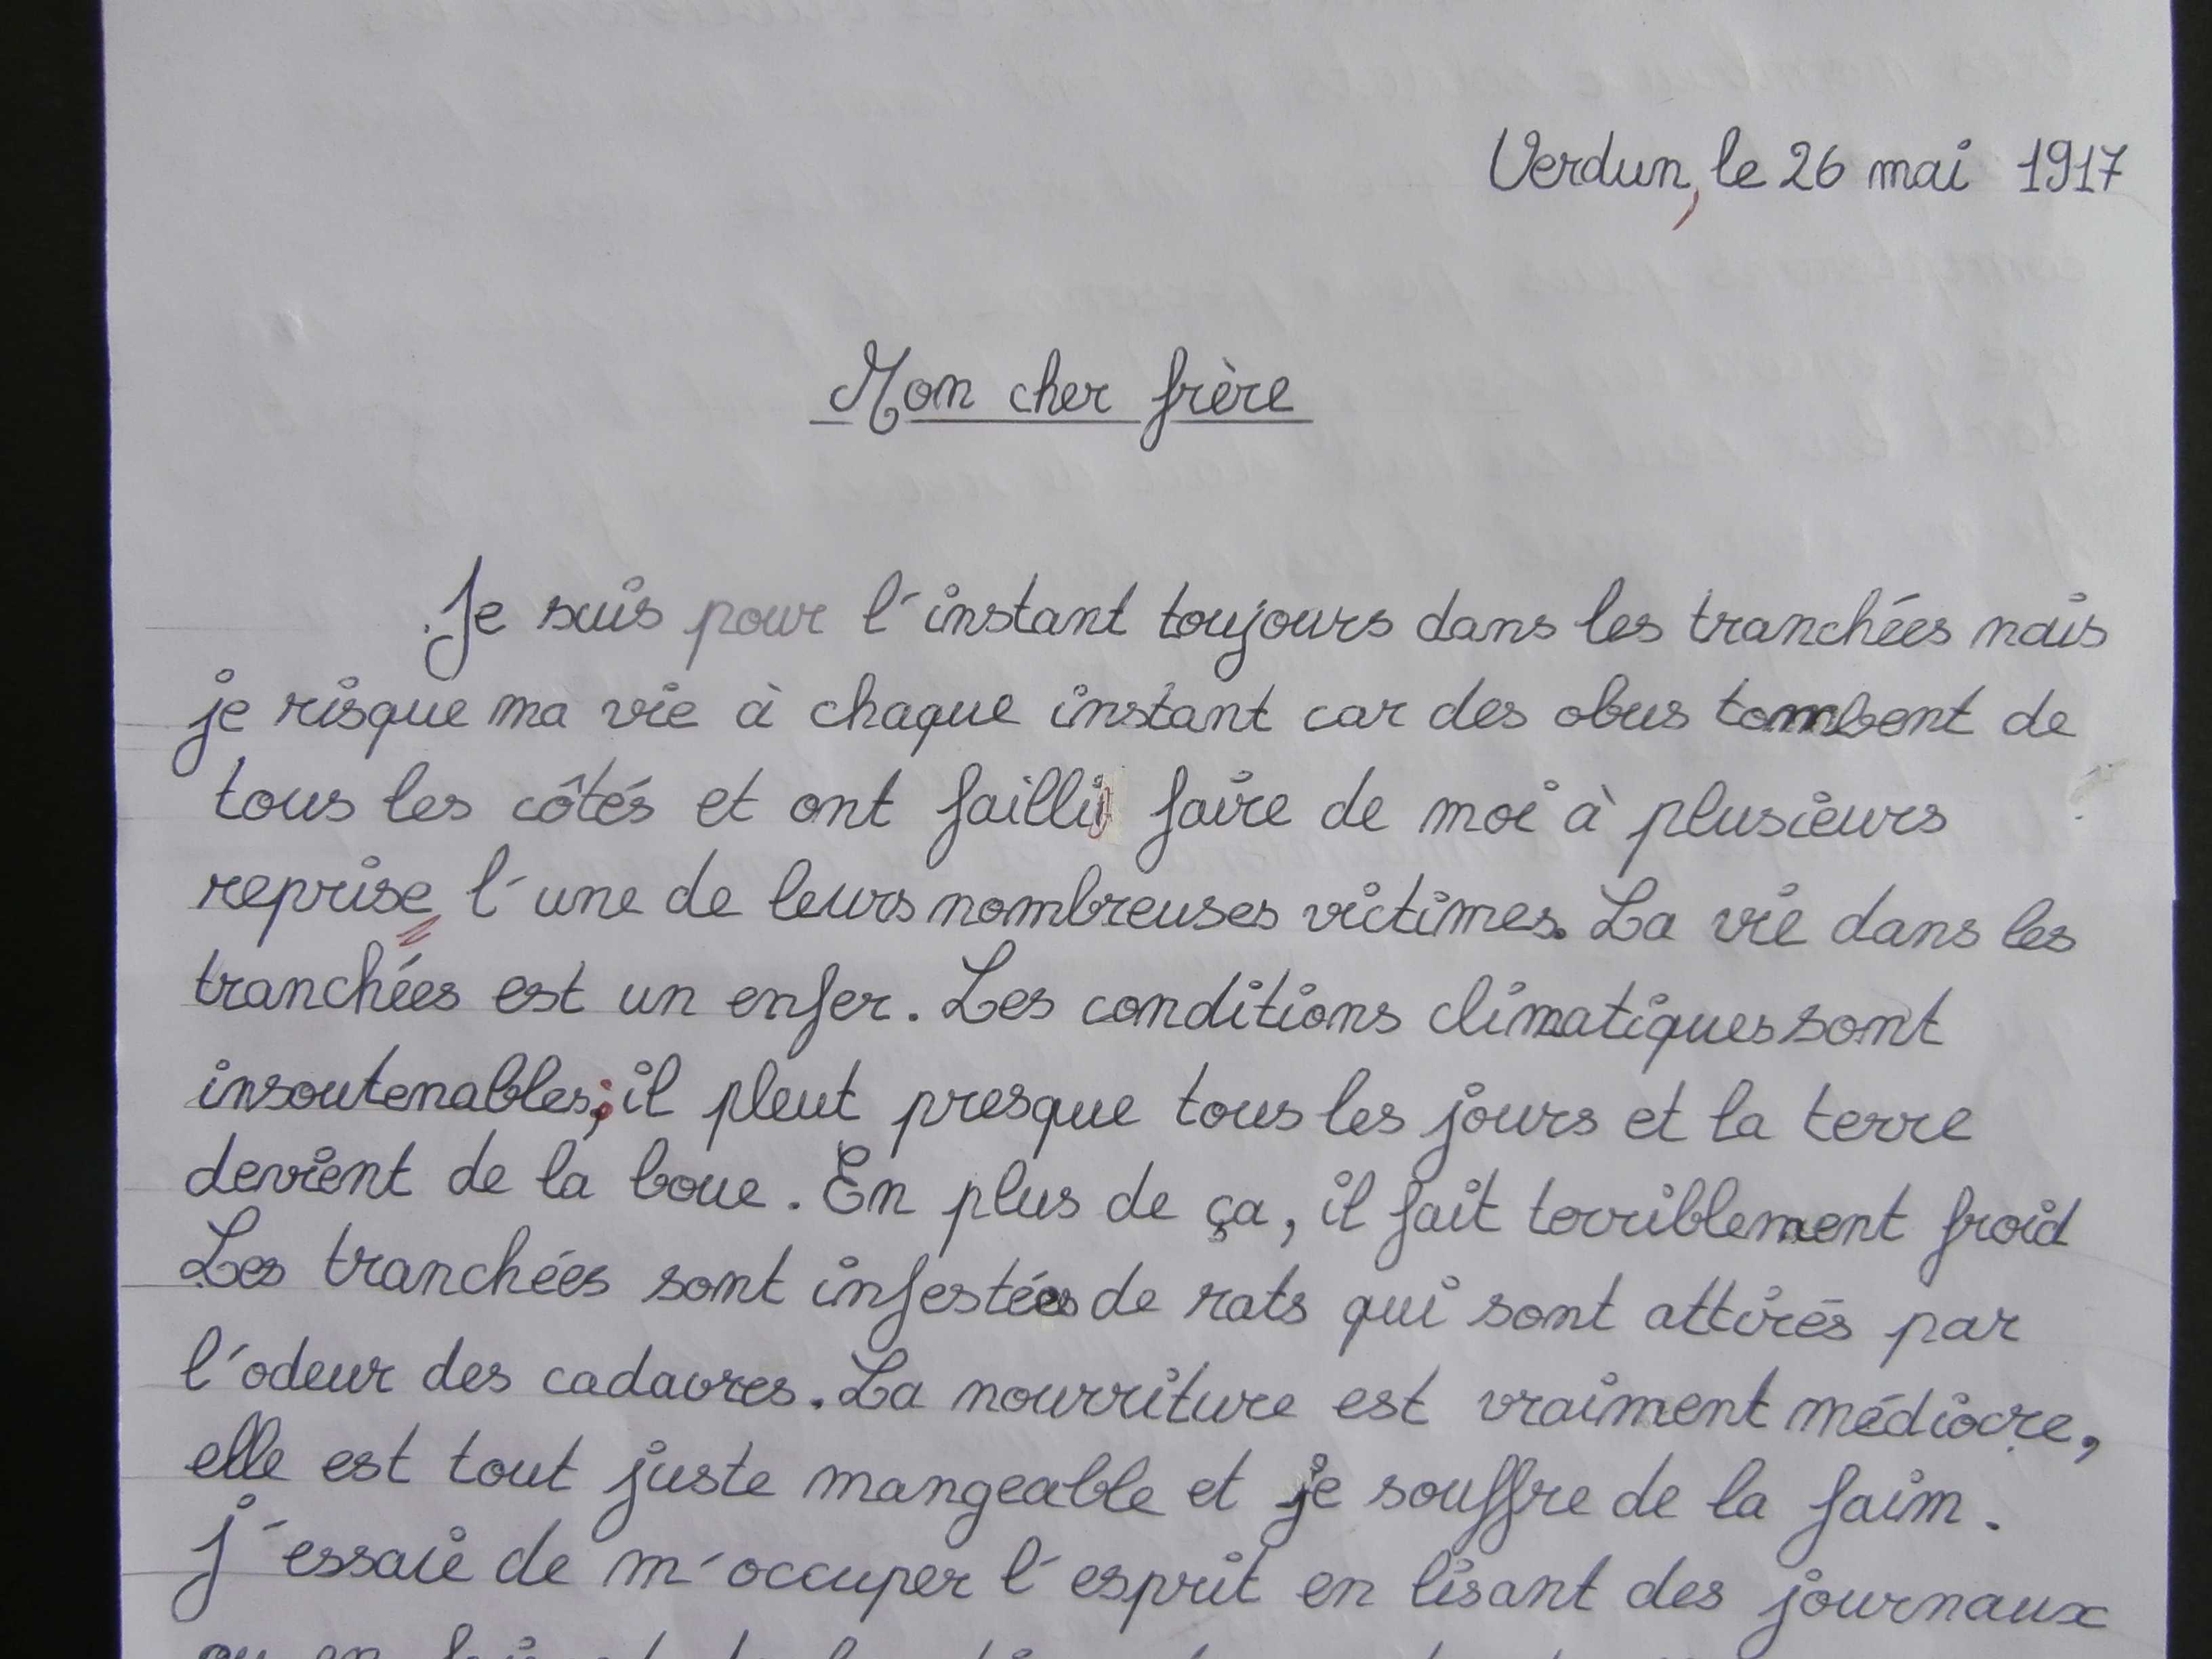 Verdun, le 26 mai 1917
Mon cher frère
Je suis pour l'instant toujours dans les tranchées mais
je risque ma vie à chaque instant car des obus tombent de
tous les côtés et ont failli faire de moi à plusieurs
reprise l'une de leurs nombreuses victimes. La vie dans les
tranchées est un enfer. Les conditions climatiques sont
insoutenables; il pleut presque tous les jours et la terre
devient de la boue. En plus de ça, il fait terriblement froid
Les tranchées sont infestées de rats qui sont attirés par
l'odeur des cadavres. La nourriture est vraiment médiocre,
elle est tout juste mangeable et je souffre de la faim.
J'essaie de m'occuper l'esprit en lisant des journaux